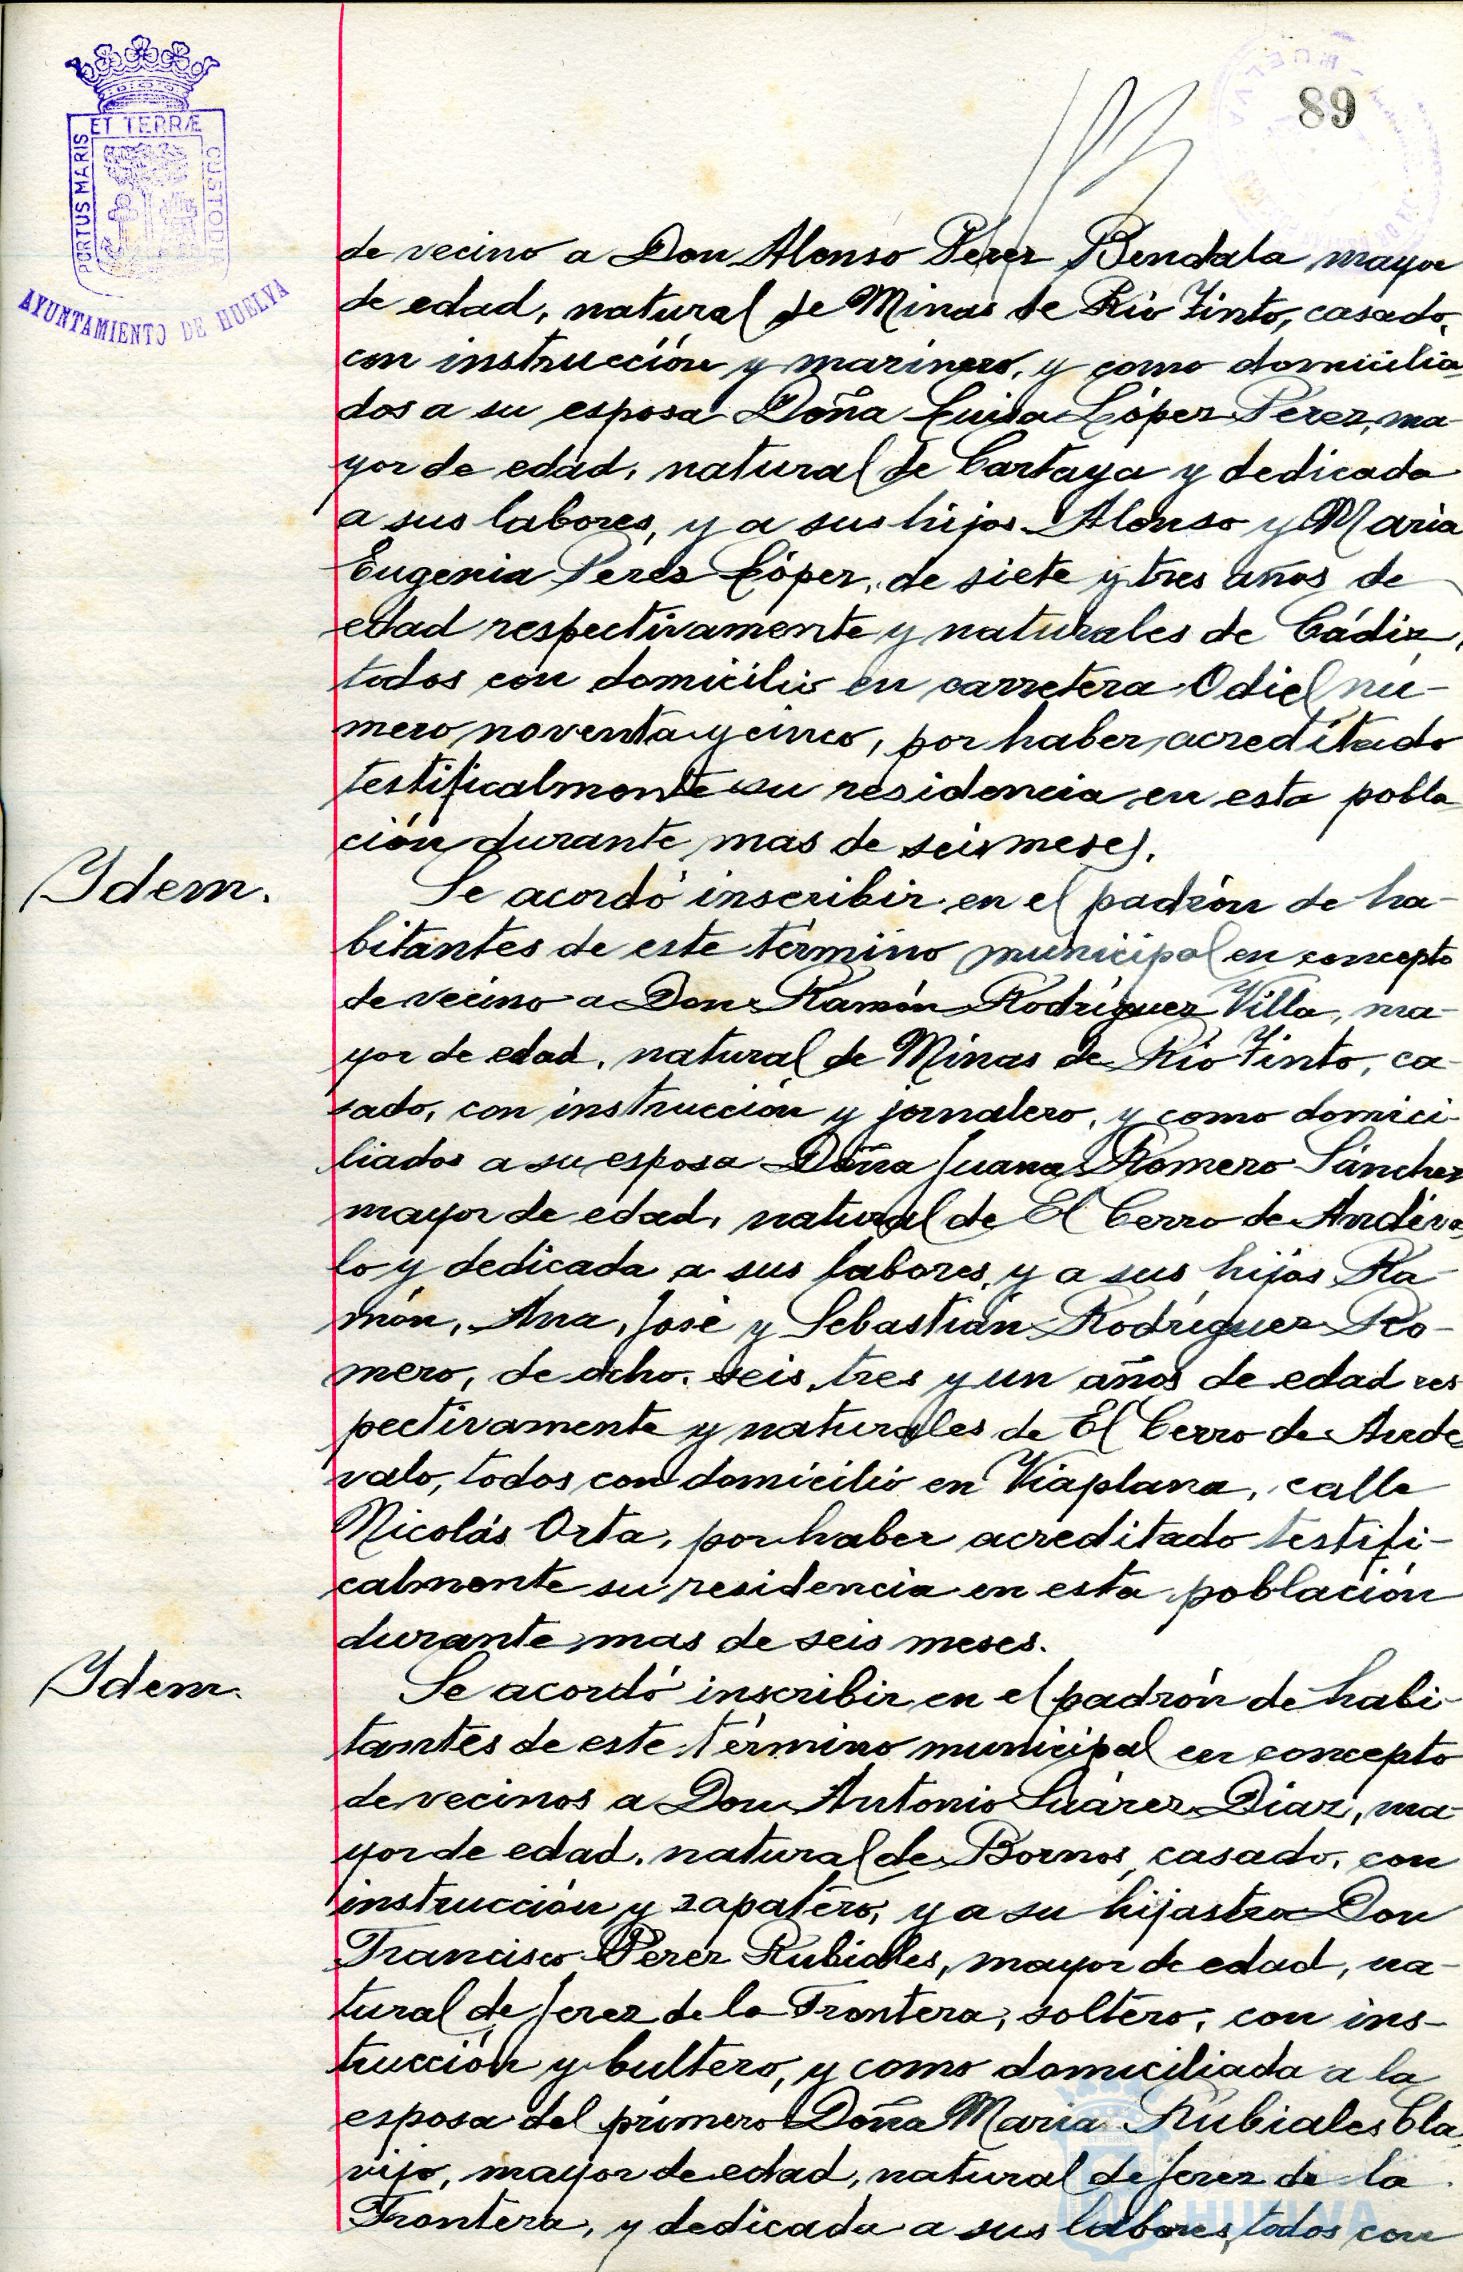 89
ET TERRÆ
PORTUS MARIS
CUSTODIA
AYUNTAMIENTO DE HUELVA
de vecino a Don Alonso Perez Bendala mayor
de edad, natural de Minas de Rio Tinto, casado,
con instrucción y marinero, y como domicilia
dos a su esposa Doña Luisa López Perez, ma-
yor de edad, natural de Cartaya y dedicada
a sus labores, y a sus hijos Alonso y Maria
Eugenia Perez López, de siete y tres años de
edad respectivamente y naturales de Cádiz,
todos con domicilio en carretera Odiel nú-
mero noventa y cinco, por haber acreditado
testificalmente su residencia en esta pobla
ción durante mas de seis meses.
Ydem.
Se acordó inscribir en el padrón de ha-
bitantes de este término municipal en concepto
de vecino a Don Ramón Rodríguez Villa, ma-
yor de edad, natural de Minas de Rio Tinto, ca-
sado, con instrucción y jornalero, y como domici-
liados a su esposa Doña Juana Romero Sánchez
mayor de edad, natural de El Cerro de Andéva
lo y dedicada a sus labores, y a sus hijos Ra-
món, Ana, José y Sebastián Rodríguez Ro-
mero, de ocho, seis, tres y un años de edad res
pectivamente y naturales de El Cerro de Ande
valo, todos con domicilio en Viaplana, calle
Nicolás Orta, por haber acreditado testifi-
calmente su residencia en esta población
durante mas de seis meses.
Ydem.
Se acordó inscribir en el padrón de habi-
tantes de este término municipal en concepto
de vecinos a Don Antonio Suárez Diaz, ma-
yor de edad, natural de Bornos, casado, con
instrucción y zapatero, y a su hijastro Don
Francisco Perez Rubiales, mayor de edad, na-
tural de Jerez de la Frontera, soltero, con ins-
trucción y bultero, y como domiciliada a la
esposa del primero Doña Maria Rubiales Cla
vijo, mayor de edad, natural de Jerez de la
Frontera, y dedicada a sus labores, todos con
HUELVA